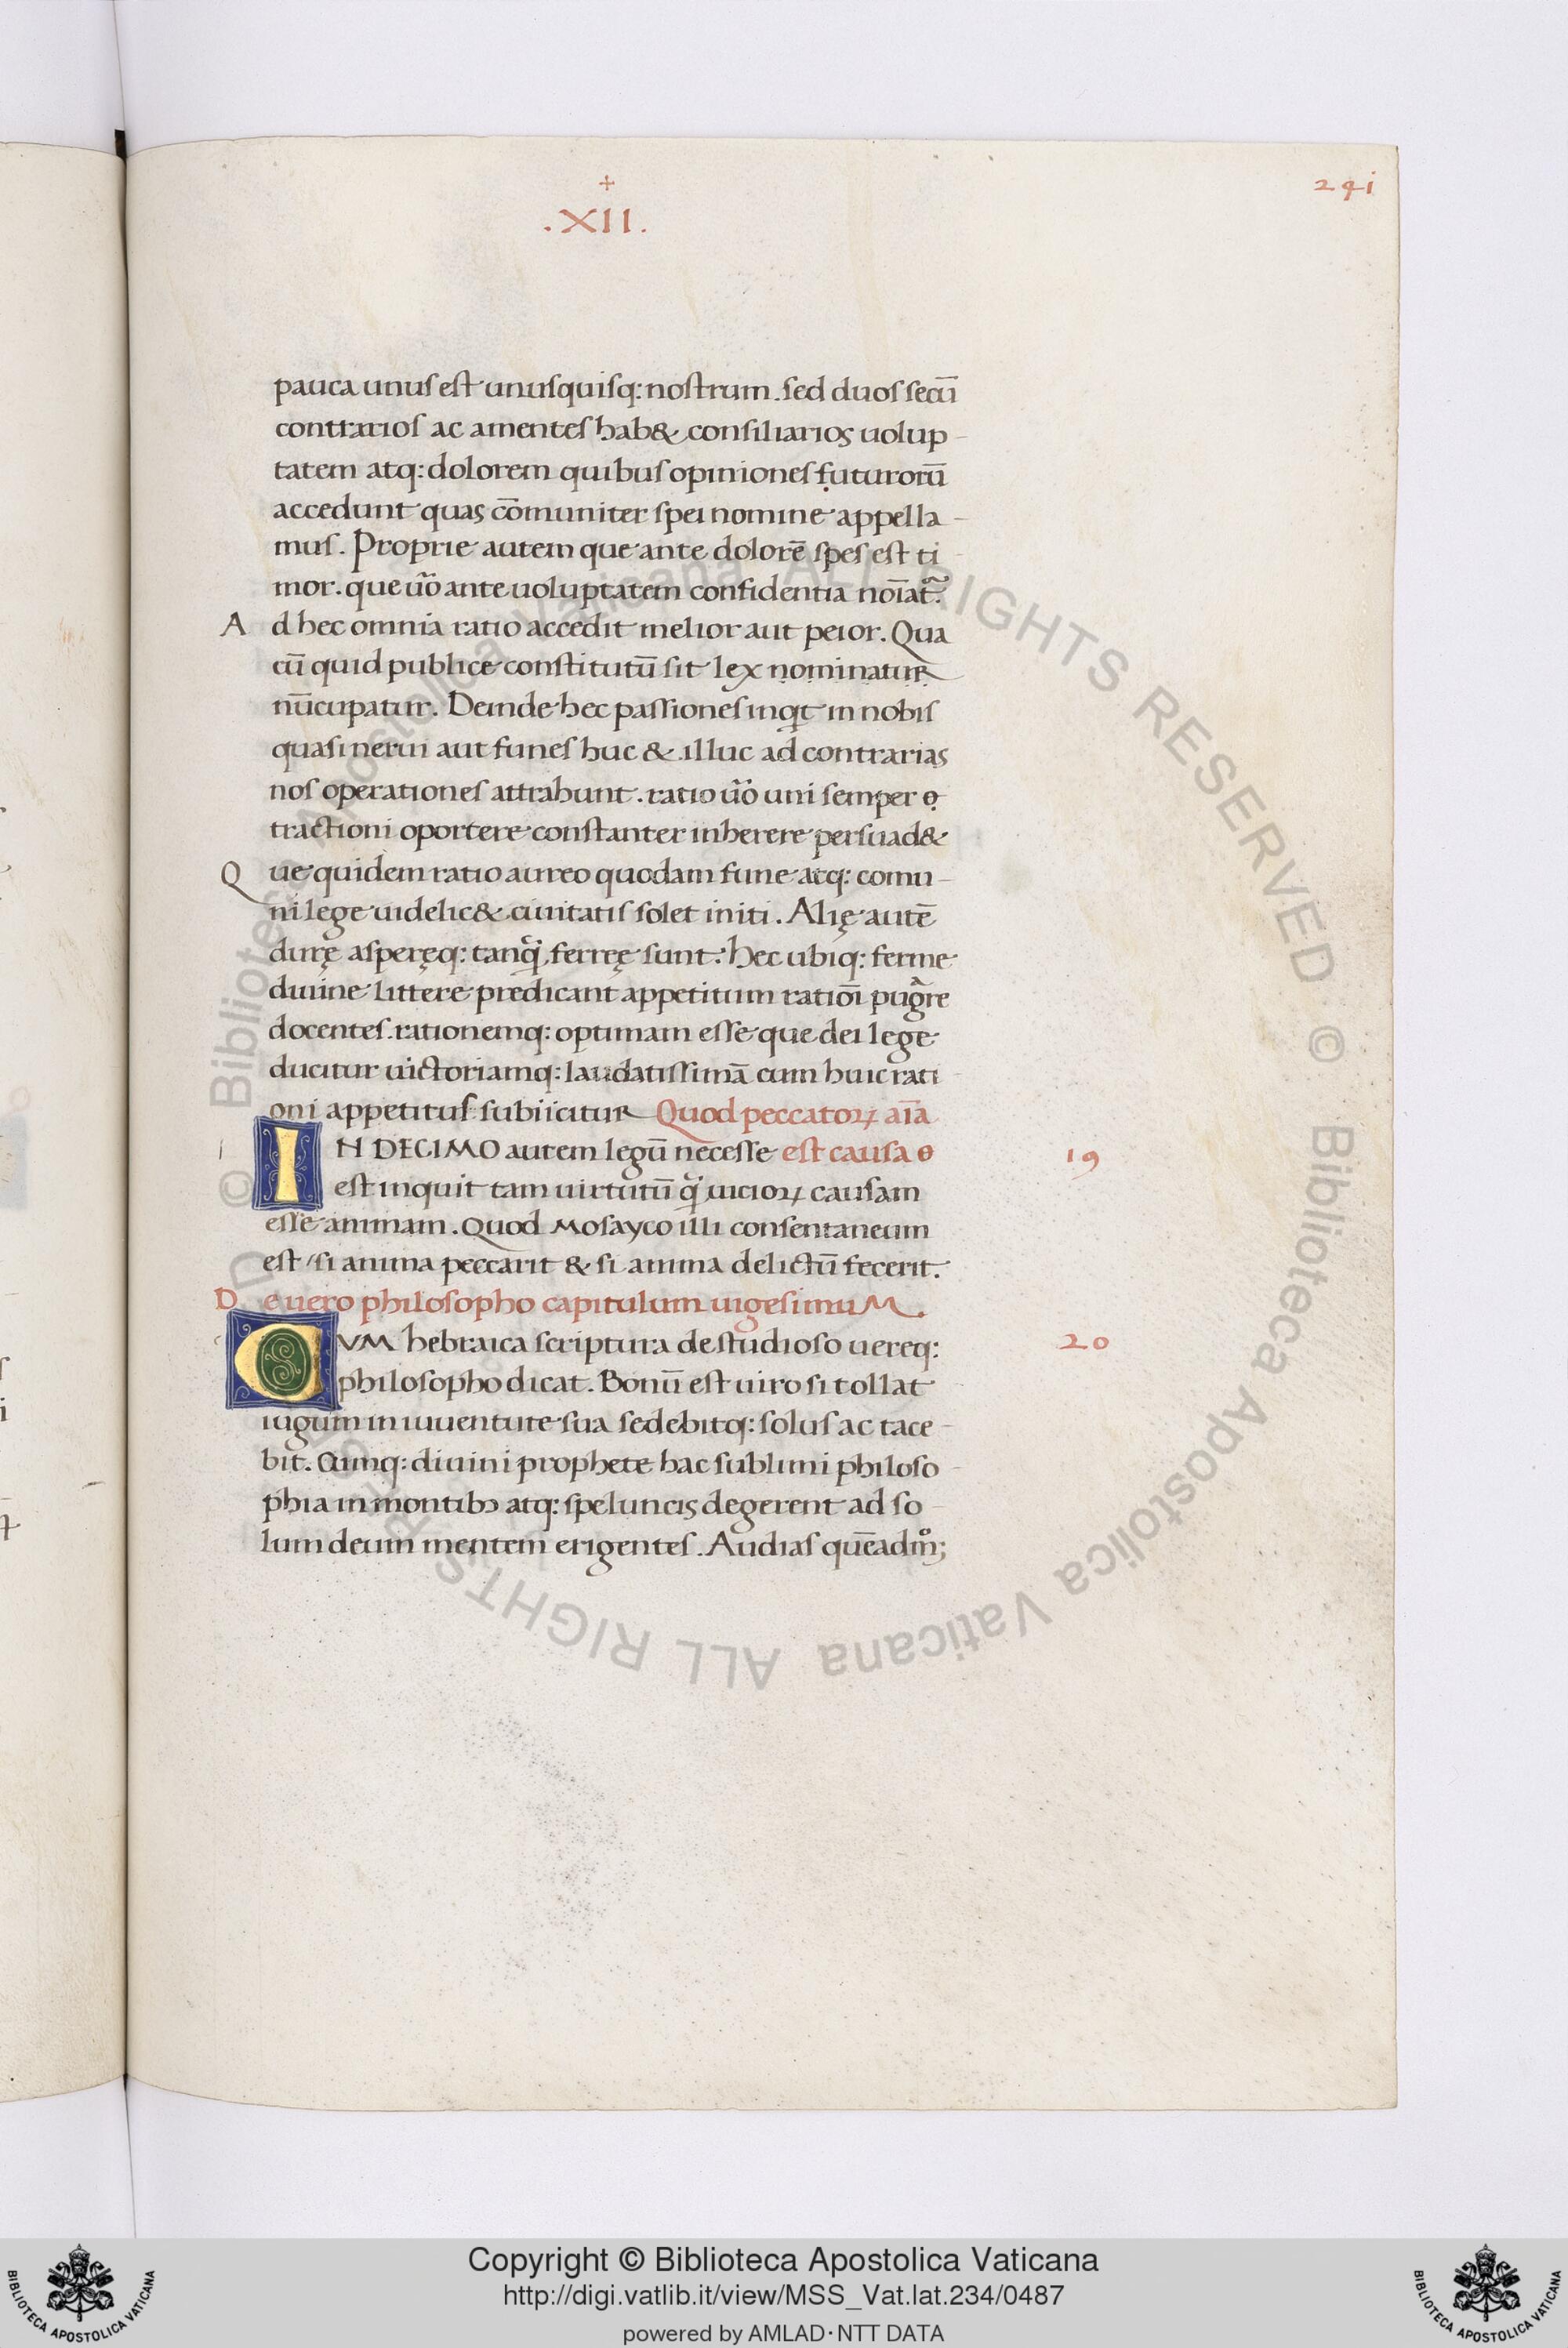 +
.XII.
241
pauca unus est unusquisq: nostrum. sed duos secū
contrarios ac amentes hab& consiliarios uolup-
tatem atq: dolorem quibus opiniones futurorū
accedunt quas cōmuniter spei nomine appella-
mus. Proprie autem que ante dolorē spes est ti-
mor. que ūo ante uoluptatem confidentia noīat̃.
Ad hec omnia ratio accedit melior aut peior. Qua
cū quid publice constitutū sit lex nominatur
nūcupatur. Deinde hec passiones inqt in nobis
quasi nerui aut funes huc & illuc ad contrarias
nos operationes attrahunt. ratio ūo uni semper
tractioni oportere constanter inherere persuad&
Que quidem ratio aureo quodam fune atq: comu-
ni lege uidelic& ciuitatis solet initi. Alię autē
durę asperęq: tanq̃ ferreę sunt. hec ubiq: ferme
diuine littere predicant appetitum ratiōi pugr̃e
docentes. rationemq: optimam esse que dei lege
ducitur uictoriamq: laudatissimā cum huic rati-
oni appetitus subiicitur Quod peccatoꝝ aīa
IN DECIMO autem legū necesse est causa 19
est inquit tam uirtutū q̃ uicioꝝ causam
esse animam. Quod Mosayco illi consentaneum
est / si anima peccarit & si anima delictū fecerit.
De uero philosopho capitulum uigesimuM.
CVM hebraica scriptura de studioso uereq: 20
philosopho dicat. Bonū est uiro si tollat
iugum in iuuentute sua sedebitq: solus ac tace-
bit. Cumq: diuini prophete hac sublimi philoso-
phia in montibꝰ atq: speluncis degerent ad so-
lum deum mentem erigentes. Audias quēadm̊;
© Biblioteca Apostolica Vaticana ALL RIGHTS RESERVED © Biblioteca Apostolica Vaticana ALL RIGHTS RESERVED
Copyright © Biblioteca Apostolica Vaticana
http://digi.vatlib.it/view/MSS_Vat.lat.234/0487
powered by AMLAD·NTT DATA
BIBLIOTECA APOSTOLICA VATICANA
BIBLIOTECA APOSTOLICA VATICANA